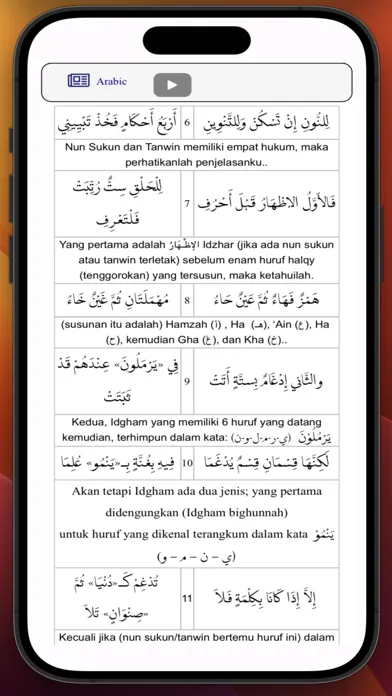 Arabic
لِلنُّونِ إِنْ تَسْكُنْ وَلِلتَّنْوِينِ 6 أَرْبَعُ أَحْكَامٍ فَخُذْ تَبْيِينِي
Nun Sukun dan Tanwin memiliki empat hukum, maka
perhatikanlah penjelasanku..
فَالأَوَّلُ الاظْهَارُ قَبْلَ أَحْرُفِ 7 لِلْحَلْقِ سِتٌّ رُتِّبَتْ
فَلْتَعْرِفِ
Yang pertama adalah الإِظْهَارُ Idzhar (jika ada nun sukun
atau tanwin terletak) sebelum enam huruf halqy
(tenggorokan) yang tersusun, maka ketahuilah.
هَمْزٌ فَهَاءٌ ثُمَّ عَيْنٌ حَاءُ 8 مُهْمَلَتَانِ ثُمَّ غَيْنٌ خَاءُ
(susunan itu adalah) Hamzah (أ) , Ha (هـ), 'Ain (ع), Ha
(ح), kemudian Gha (غ), dan Kha (خ)..
والثَّانِي إِدْغَامٌ بِسِتَّةٍ أَتَتْ 9 فِي «يَرْمَلُونَ» عِنْدَهُمْ قَدْ
ثَبَتَتْ
Kedua, Idgham yang memiliki 6 huruf yang datang
kemudian, terhimpun dalam kata: يَرْمُلُوْنَ (ي-ر-م-ل-و-ن)
لَكِنَّهَا قِسْمَانِ قِسْمٌ يُدْغَمَا 10 فِيهِ بِغُنَّةٍ بِـ«يَنْمُو» عُلِمَا
Akan tetapi Idgham ada dua jenis; yang pertama
didengungkan (Idgham bighunnah)
untuk huruf yang dikenal terangkum dalam kata يَنْمُوْ
(ي – ن – م – و)
إِلاَّ إِذَا كَانَا بِكِلْمَةٍ فَلاَ 11 تُدْغِمْ كَـ«دُنْيَا» ثُمَّ
«صِنْوَانٍ» تَلاَ
Kecuali jika (nun sukun/tanwin bertemu huruf ini) dalam